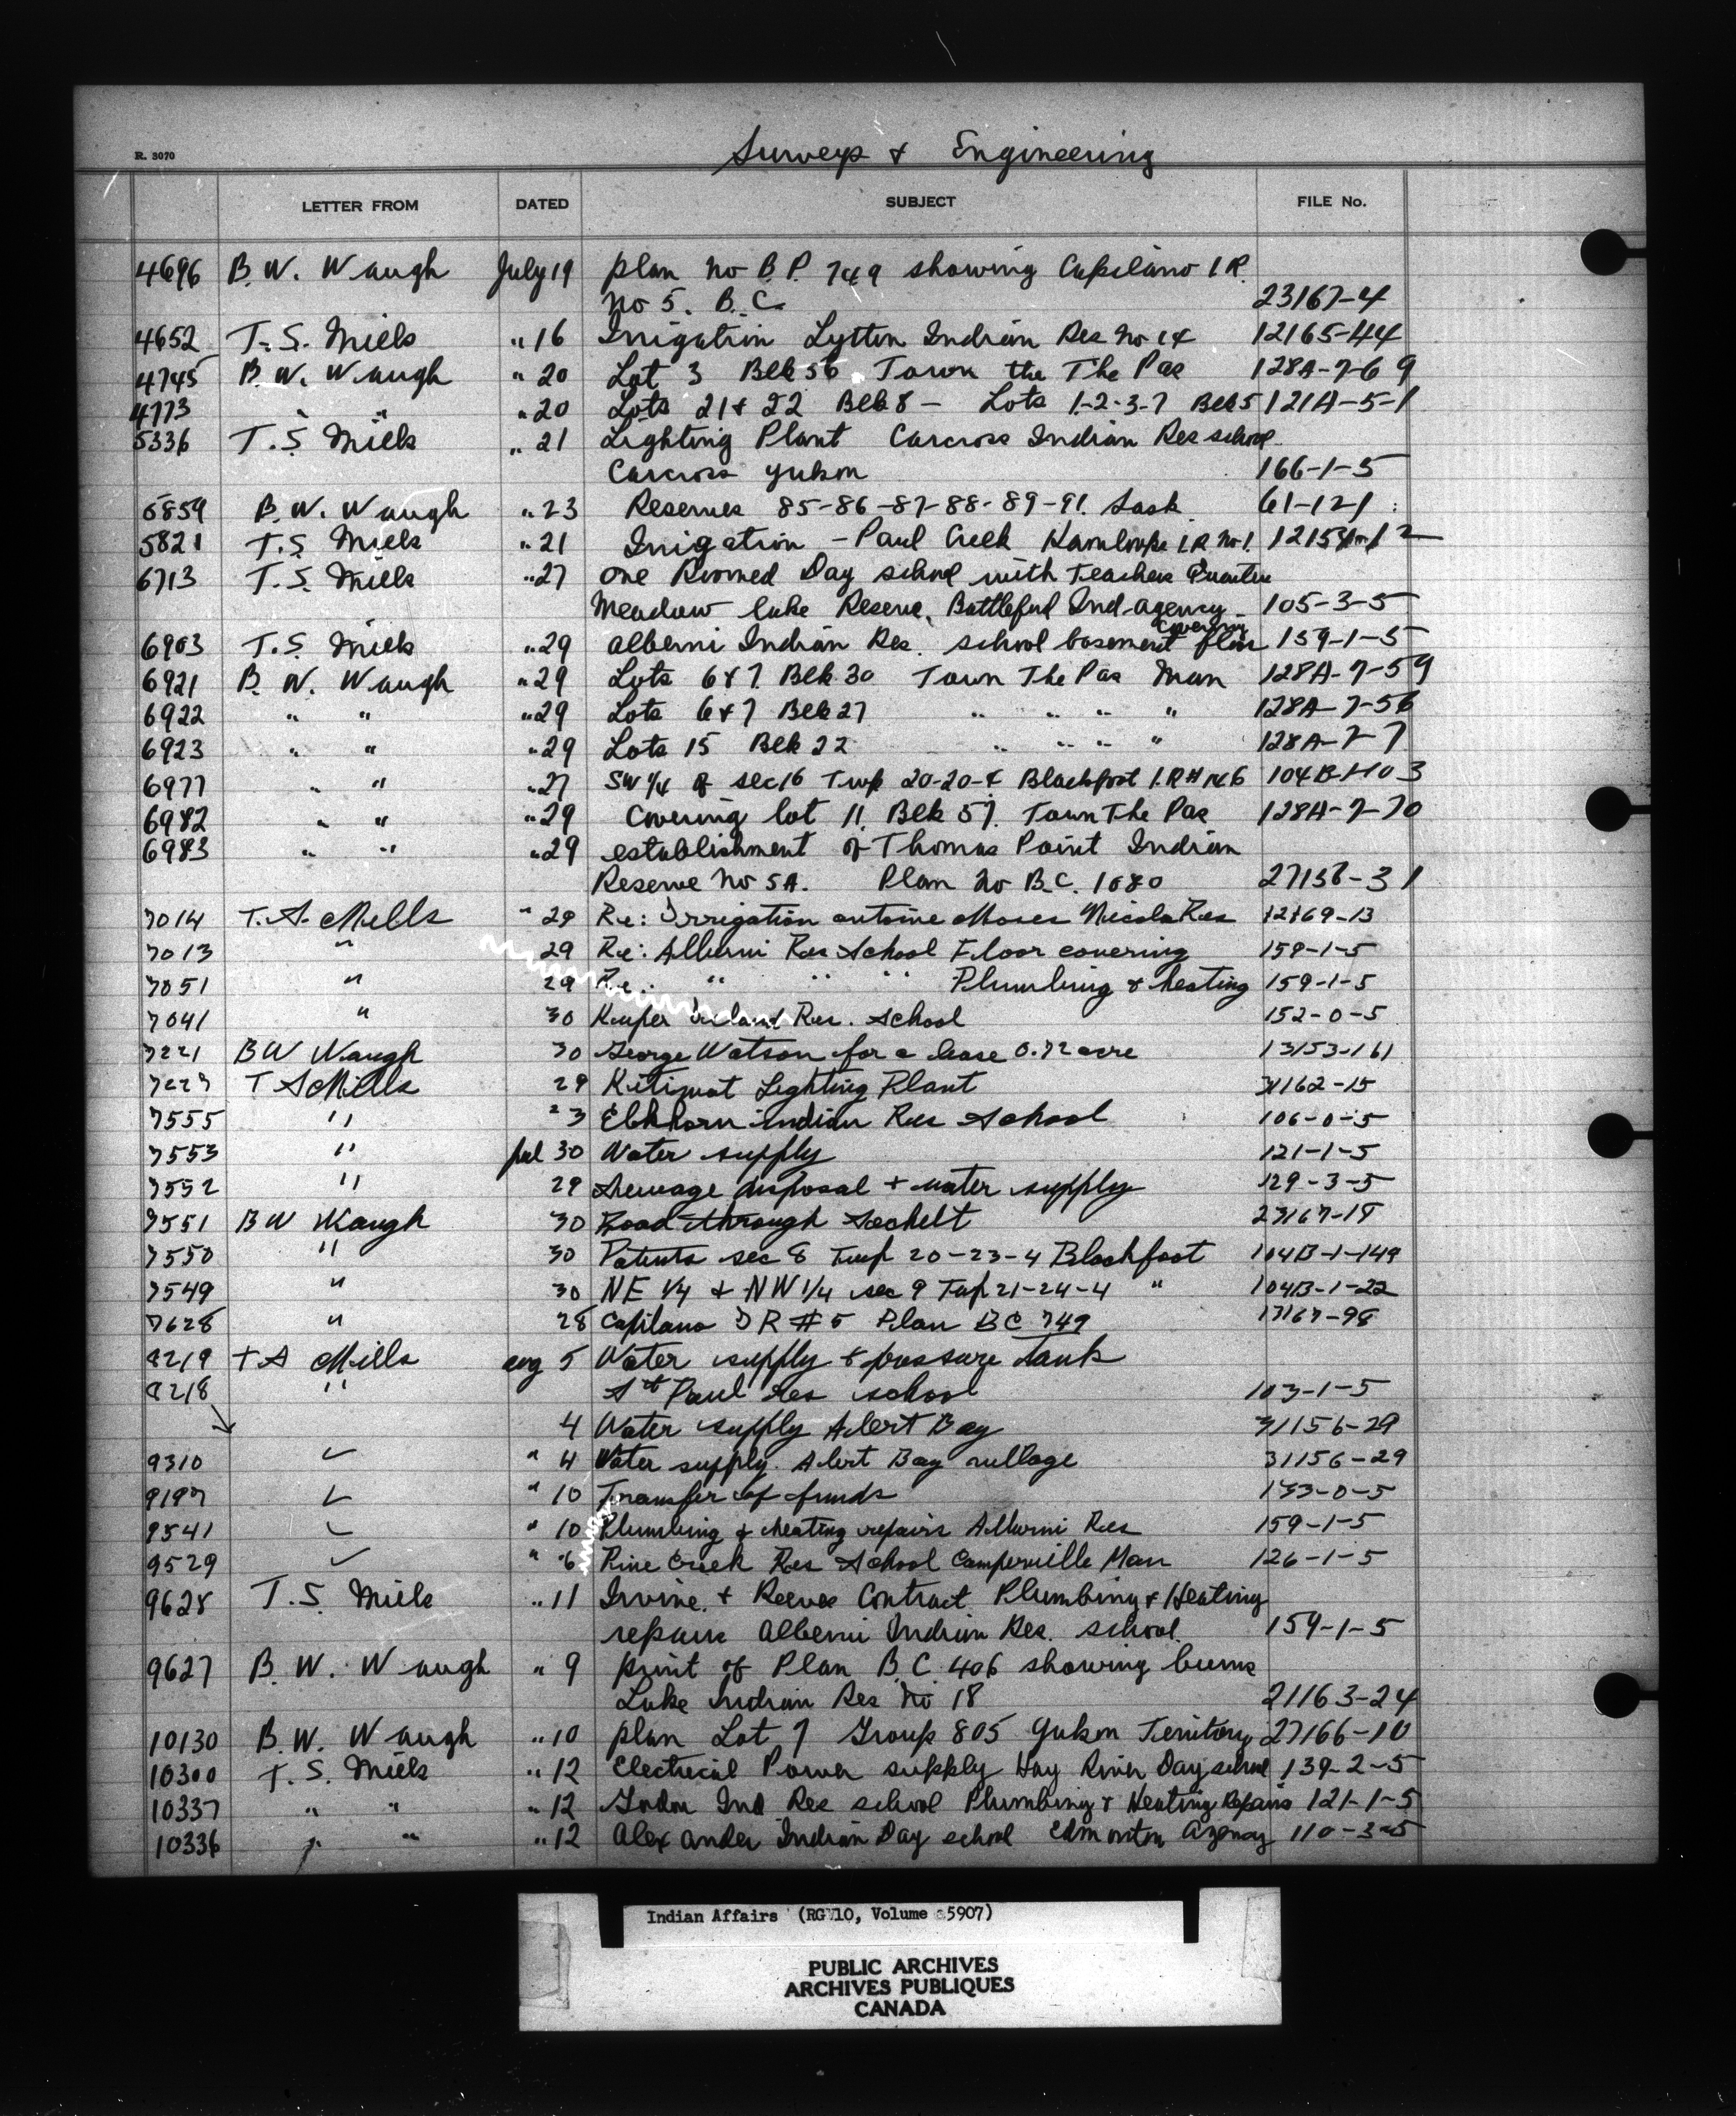 R. 3070
Surveys & Engineering
LETTER FROM DATED SUBJECT FILE No.
4696 B. W. Waugh July 19 plan no B.P. 749 showing Capilano I.R.
No 5. B.C. 23167-4
4652 T.S. Mills " 16 Irrigation Lytton Indian Res No 14 12165-44
4745 B. W. Waugh " 20 Lot 3 Blk 56 Town the The Pas 128A-7-69
4773 " " " 20 Lots 21 & 22 Blk 8 - Lots 1-2-3-7 Blk 5 121A-5-1
5336 T.S. Mills " 21 Lighting Plant Carcross Indian Res school
Carcross Yukon 166-1-5
5859 B. W. Waugh " 23 Reserves 85-86-87-88-89-91. Sask 61-121
5821 T.S. Mills " 21 Irrigation - Paul Creek Kamloops I.R. No 1.
6713 T.S. Mills " 27 One Roomed Day school with Teachers Quarters
Meadow lake Reserve, Battleford Ind. agency 105-3-5
6903 T.S. Mills " 29 Alberni Indian Res. school basement floor covering 159-1-5
6921 B. W. Waugh " 29 Lots 6 & 7. Blk 30 Town The Pas Man 128A-7-59
6922 " " " 29 Lots 6 & 7 Blk 27 " " " " 128A-7-56
6923 " " " 29 Lots 15 Blk 22 " " " " 128A-7-7
6977 " " " 27 SW 1/4 of sec 16 Twp 20-20-4 Blackfoot I.R # 146 104B-1-103
6982 " " " 29 Covering lot 11. Blk 57. Town The Pas 128A-7-70
6983 " " " 29 establishment of Thomas Point Indian
Reserve No 5A. Plan No B.C. 1080 27138-31
7014 T. S. Mills " 29 Re: Irrigation antoine Moses Nicola Res 12169-13
7013 " 29 Re: Alberni Res School Floor covering 159-1-5
7051 " 29 Re: " " " Plumbing & heating 159-1-5
7041 " 30 Kuper Island Res. School 152-0-5
7221 B W Waugh 30 George Watson for a lease 0.72 acre 13153-161
7227 T S Mills 29 Kitimat Lighting Plant 31162-15
7555 " 23 Elkhorn indian Res School 106-0-5
7553 " Jul 30 Water supply 121-1-5
7552 " 29 Sewage disposal + water supply 129-3-5
7551 B W Waugh 30 Road through Sechelt 23167-18
7550 " 30 Patents sec 8 Twp 20-23-4 Blackfoot 104B-1-149
7549 " 30 NE 1/4 + NW 1/4 sec 9 Twp 21-24-4 " 104B-1-22
7628 " 28 Capilano I R # 5 Plan BC 749 17167-98
8219 T S Mills aug 5 Water supply & pressure tank
8218 " St Paul Res school 103-1-5
4 Water supply Alert Bay 31156-29
9310 ✓ " 4 Water supply Alert Bay village 31156-29
9197 ✓ " 10 Transfer of funds 133-0-5
9541 ✓ " 10 Plumbing & heating repairs Alberni Res 159-1-5
9529 ✓ " 6 Pine Creek Res School Camperville Man 126-1-5
9628 T.S. Mills " 11 Irvine & Reeves Contract Plumbing & Heating
repairs Alberni Indian Res. school. 159-1-5
9627 B. W. Waugh " 9 print of Plan B.C. 406 showing burns
Lake Indian Res No 18 21163-24
10130 B. W. Waugh " 10 plan Lot 7 Group 805 Yukon Territory 27166-10
10300 T.S. Mills " 12 Electrical Power supply Hay River Day school 139-2-5
10337 " " " 12 Gordon Ind Res school Plumbing & Heating Repairs 121-1-5
10336 " " " 12 Alexander Indian Day school Edmonton Agency 110-3-5
Indian Affairs (RG 10, Volume 5907)
PUBLIC ARCHIVES
ARCHIVES PUBLIQUES
CANADA